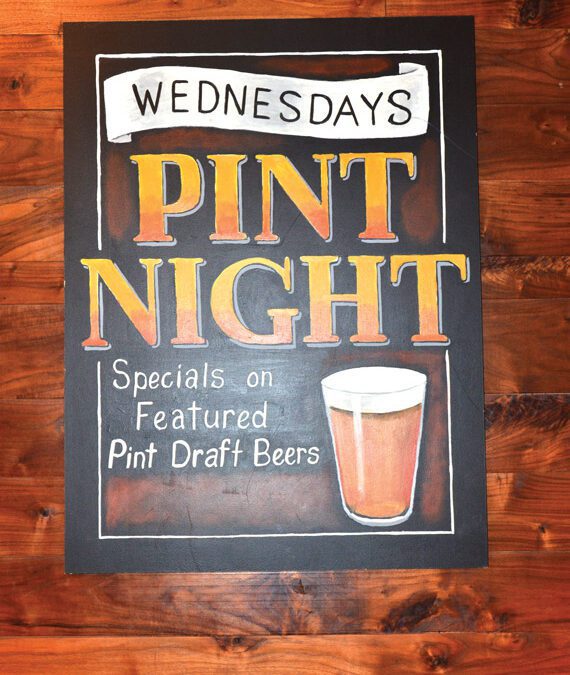 WEDNESDAYS
PINT
NIGHT
Specials on
Featured
Pint Draft Beers